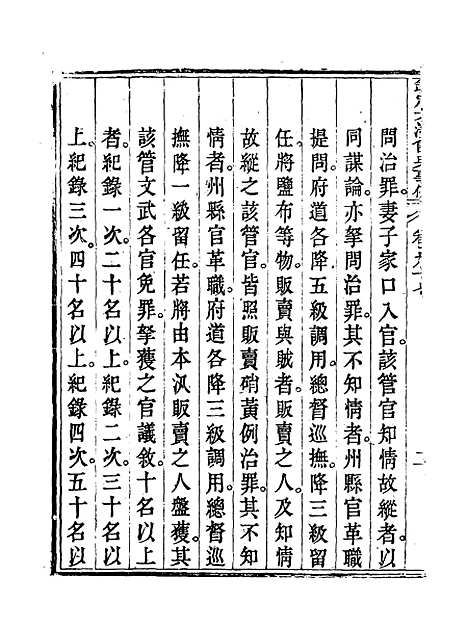 問治罪。妻子家口入官。該管官知情故縱者。以
同謀論。亦拏問治罪。其不知情者。州縣官革職
提問。府道各降五級調用。總督巡撫。降三級留
任。將鹽布等物。販賣與賊者。販賣之人。及知情
故縱之該管官。皆照販賣硝黃例治罪。其不知
情者。州縣官革職。府道各降三級調用。總督巡
撫降一級留任。若將由本汛販賣之人盤獲。其
該管文武各官免罪。拏獲之官議敘。十名以上
者。紀錄一次。二十名以上。紀錄二次。三十名以
上。紀錄三次。四十名以上。紀錄四次。五十名以